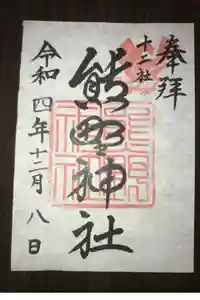 奉拝
十二社
熊野神社
令和四年十二月八日